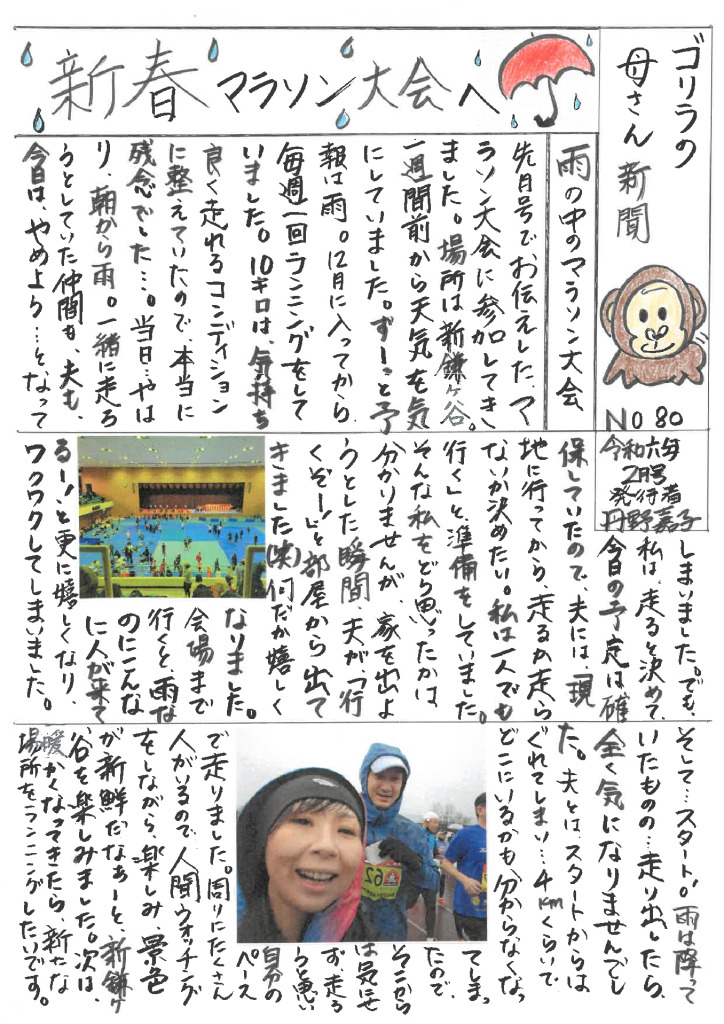 ゴリラの
母さん新聞
NO 80
令和六年
2月号
発行者
丹野嘉子
新春マラソン大会へ
雨の中のマラソン大会
先月号でお伝えした、マ
ラソン大会に参加してき
ました。場所は新鎌ヶ谷。
一週間前から天気を気
にしていました。ずーっと予
報は雨。12月に入ってから、
毎週一回ランニングをして
いました。10キロは、気持ち
良く走れるコンディション
に整えていたので、本当に
残念でした…。当日…やは
り、朝から雨。一緒に走ろ
うとしていた仲間も、夫も、
今日は、やめよう…と、なって
しまいました。でも、
私は、走ると決めて、
今日の予定は確
保していたので、夫には、「現
地に行ってから、走るか走ら
ないか決めたい。私は一人でも
行く」と、準備をしていました。
そんな私をどう思ったかは、
分かりませんが、家を出よ
うとした瞬間、夫が、「行
くぞー!」と部屋から出て
きました(笑)何だか嬉しく
なりました。
会場まで
行くと、雨な
のにこんな
に人が来て
るー!と更に嬉しくなり、
ワクワクしてしまいました。
そして…スタート!雨は降って
いたものの…走り出したら、
全く気になりませんでし
た。夫とは、スタートからは
ぐれてしまい…4kmくらいで
どこにいるかも、分からなくなっ
てしまっ
たので、
そこから
は気にせ
ず、走る
うと思い
自分の
ペース
で走りました。周りにたくさん
人がいるので、人間ウォッチング
をしながら、楽しみ 景色
が新鮮だなぁーと、新鎌ヶ
谷を楽しみました。次は、
暖かくなってきたら、新たな
場所をランニングしたいです。